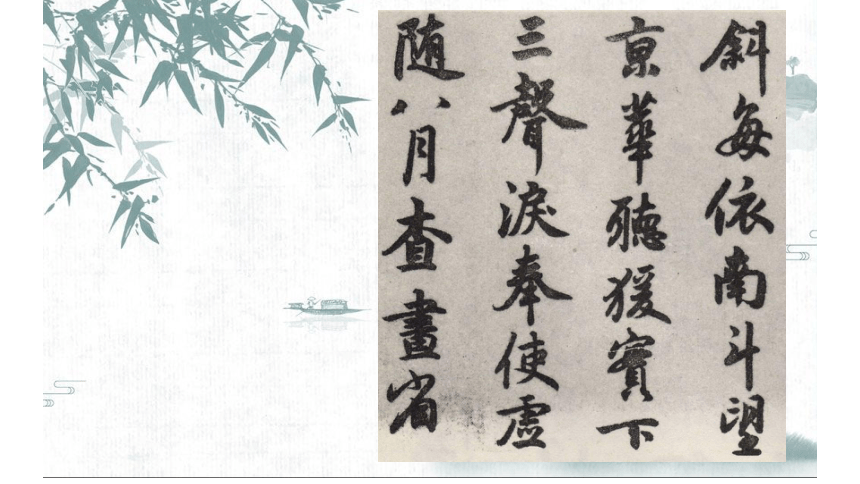 斜每依南斗望
京華聽猨實下
三聲淚奉使虛
隨八月查畫省